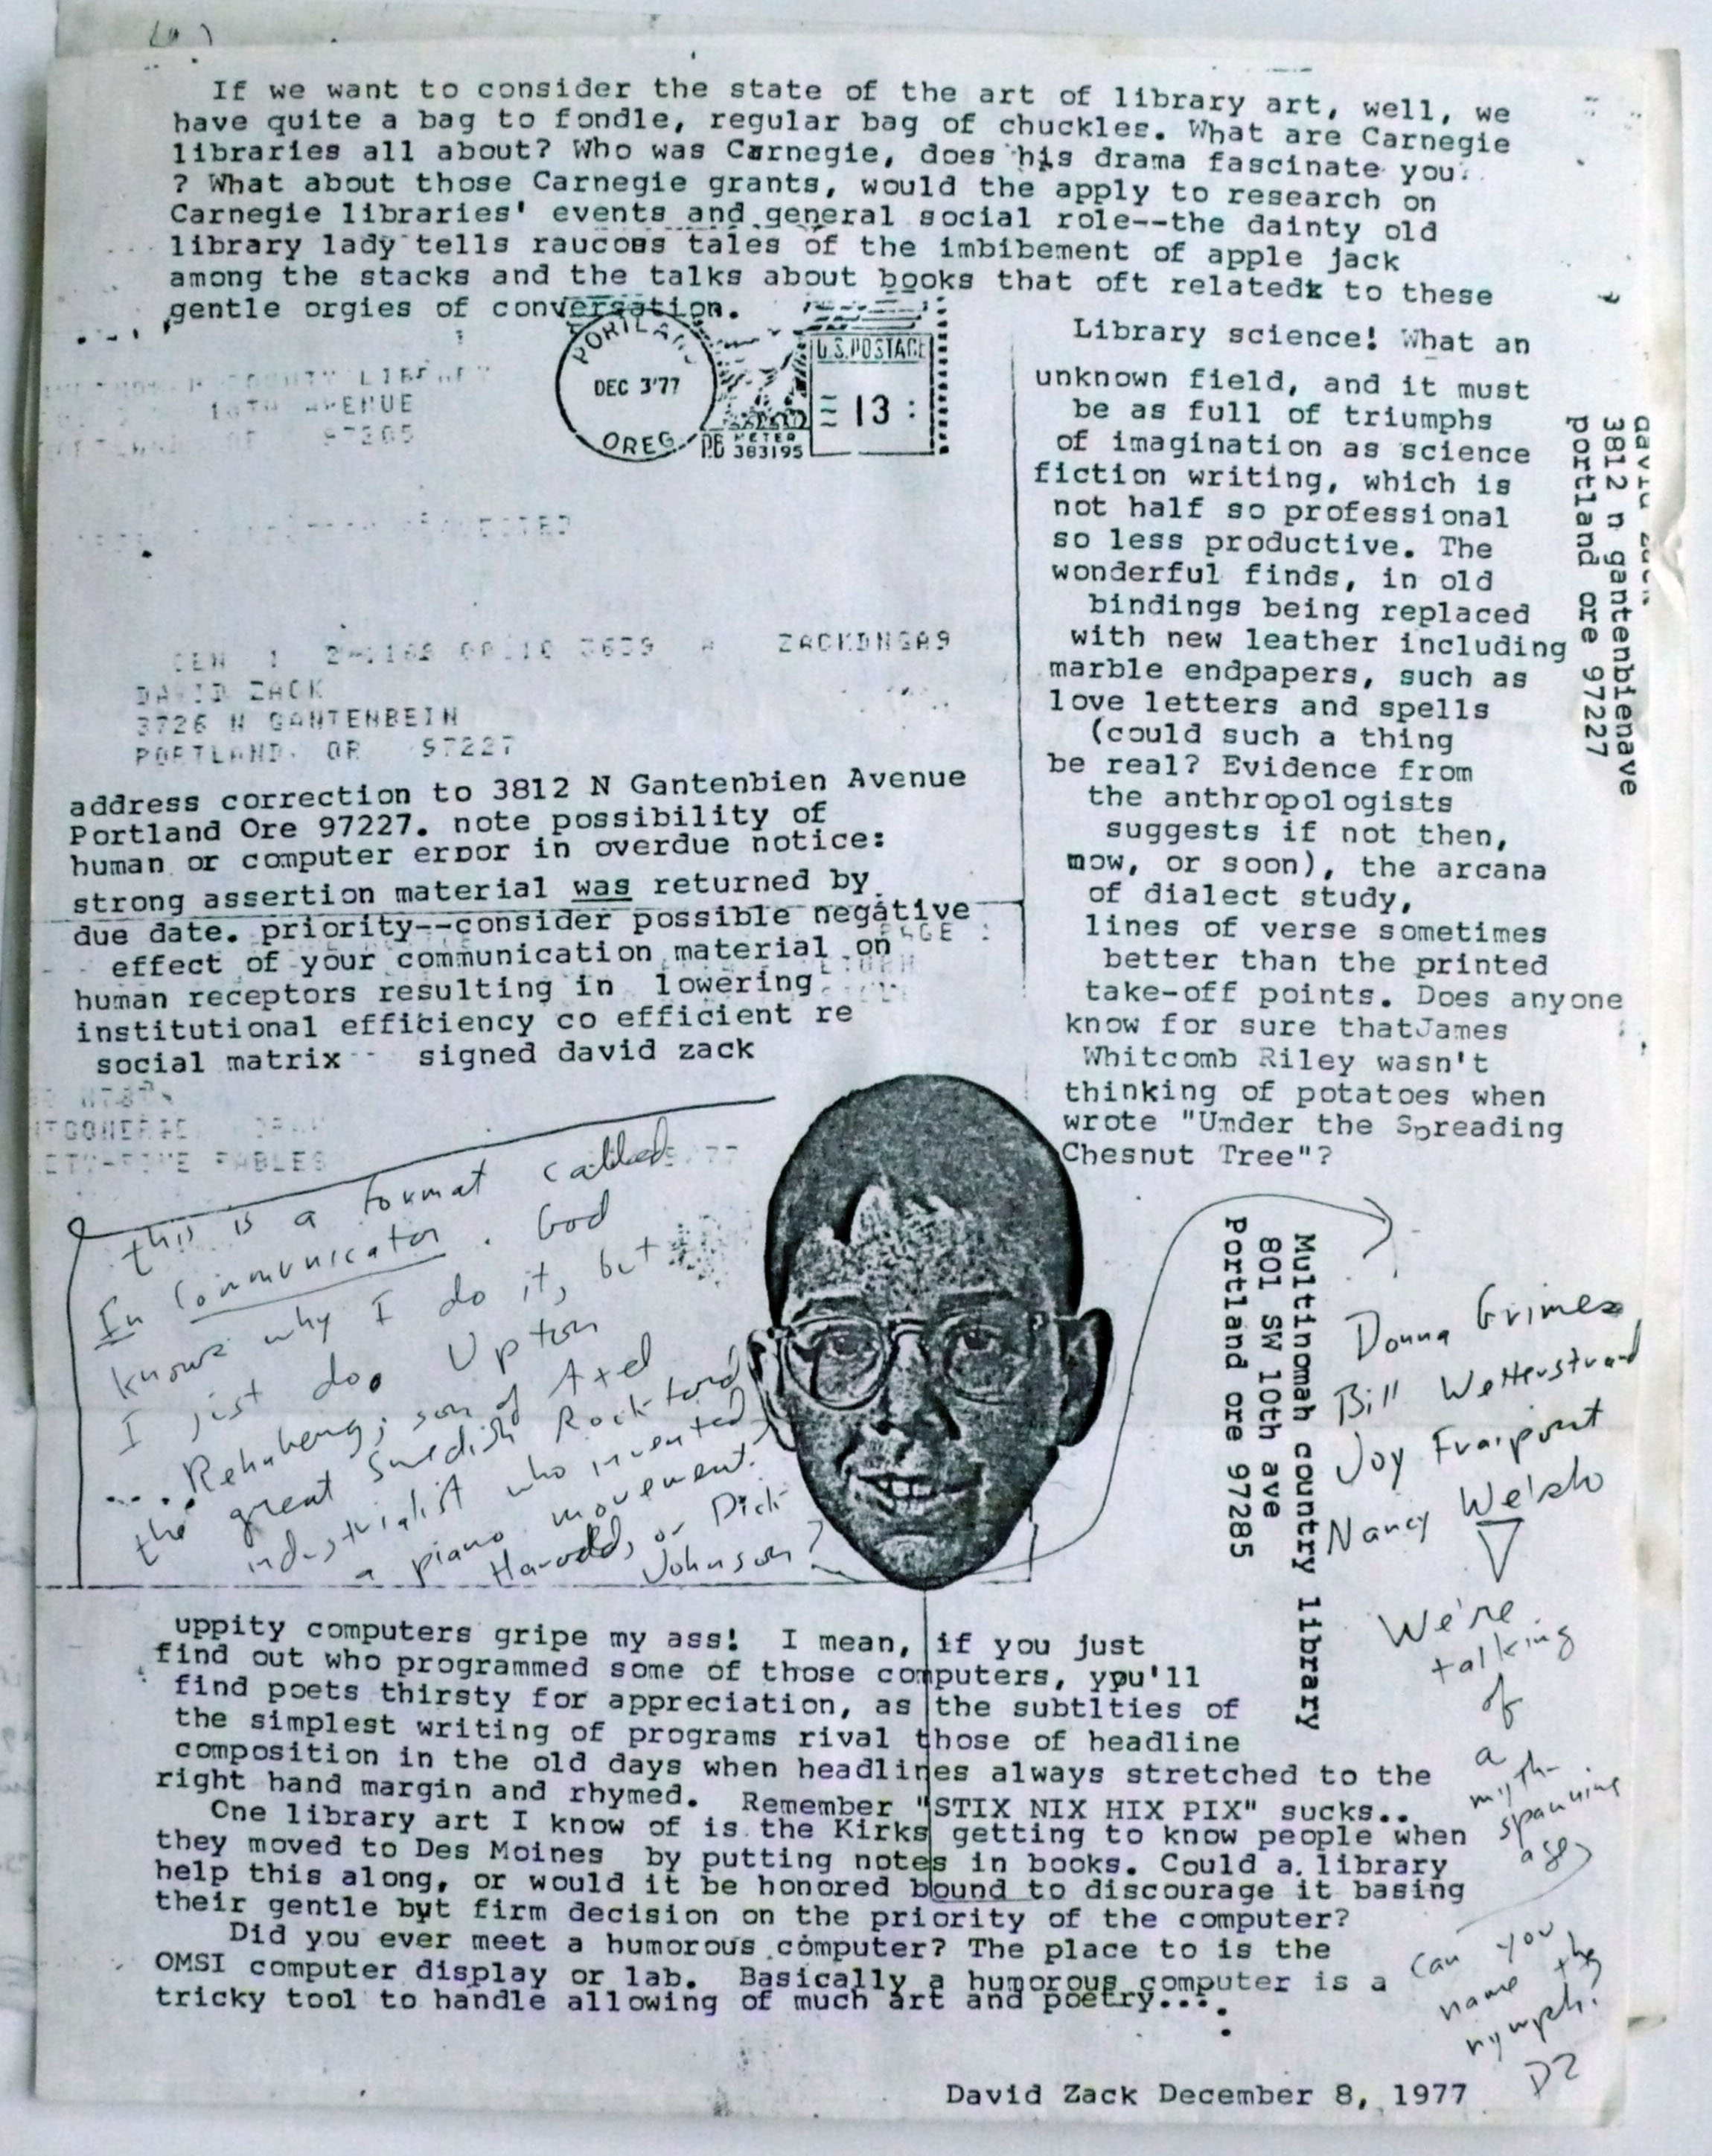 If we want to consider the state of the art of library art, well, we
have quite a bag to fondle, regular bag of chuckles. What are Carnegie
libraries all about? Who was Carnegie, does his drama fascinate you.
? What about those Carnegie grants, would the apply to research on
Carnegie libraries' events and general social role--the dainty old
library lady tells raucoas tales of the imbibement of apple jack
among the stacks and the talks about books that oft relatedk to these
gentle orgies of conversation.
PORTLAND
DEC 3'77
OREG.
PB METER
383195
U.S.POSTAGE
13
COUNTY LIBRARY
10TH AVENUE
97205
ZACKDNGA9
DAVID ZACK
3726 N GANTENBEIN
PORTLAND, OR 97227
address correction to 3812 N Gantenbien Avenue
Portland Ore 97227. note possibility of
human or computer error in overdue notice:
strong assertion material was returned by
due date. priority--consider possible negative
effect of your communication material on
human receptors resulting in lowering
institutional efficiency co efficient re
social matrix signed david zack
FABLES
Library science! What an
unknown field, and it must
be as full of triumphs
of imagination as science
fiction writing, which is
not half so professional
so less productive. The
wonderful finds, in old
bindings being replaced
with new leather including
marble endpapers, such as
love letters and spells
(could such a thing
be real? Evidence from
the anthropologists
suggests if not then,
mow, or soon), the arcana
of dialect study,
lines of verse sometimes
better than the printed
take-off points. Does anyone
know for sure thatJames
Whitcomb Riley wasn't
thinking of potatoes when
wrote "Under the Spreading
Chesnut Tree"?
david zack
3812 n gantenbienave
portland ore 97227
this is a format called
In Communicator. God
knows why I do it, but
I just do. Upton
Rehnberg; son of Axel
the great Swedish Rockford
industrialist who invented
a piano movement.
Harolds or Dick
Johnson?
Multinomah country library
801 SW 10th ave
Portland ore 97285
Donna Grimes
Bill Wetterstrand
Joy
Nancy Welsh
We're
talking
of
a
myth-
spanning
age
can you
name the
nymph?
DZ
uppity computers gripe my ass! I mean, if you just
find out who programmed some of those computers, ypu'll
find poets thirsty for appreciation, as the subtlties of
the simplest writing of programs rival those of headline
composition in the old days when headlines always stretched to the
right hand margin and rhymed. Remember "STIX NIX HIX PIX" sucks..
One library art I know of is the Kirks getting to know people when
they moved to Des Moines by putting notes in books. Could a library
help this along, or would it be honored bound to discourage it basing
their gentle but firm decision on the priority of the computer?
Did you ever meet a humorous computer? The place to is the
OMSI computer display or lab. Basically a humorous computer is a
tricky tool to handle allowing of much art and poetry....
David Zack December 8, 1977